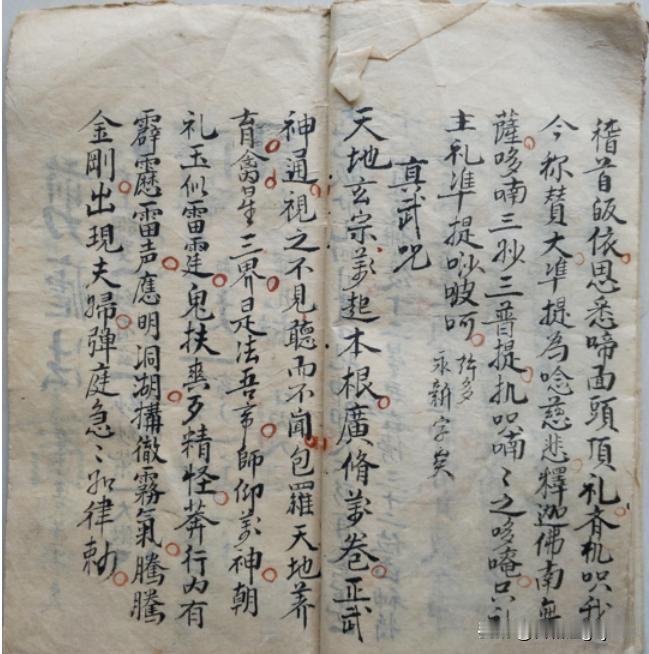 稽首皈依思悉啼面頭頂礼斉机只我
今称賛大準提為唸慈悲釋迦佛南無
薩哆喃三妙三普提扎只喃々之哆唵口礼
主礼準提吵唆呵 許多
永新字矣
真武咒
天地玄宗萬起本根廣脩萬卷正武
神通視之不見聽而不聞包羅天地养
育禽星三界是法吾帝師仰萬神朝
礼玉似雷霆鬼扶爽歹精怪莽行内有
霹靂雷声應明洞湖搆徹霧氣騰騰
金剛出現夫婦彈庭急々如律勅